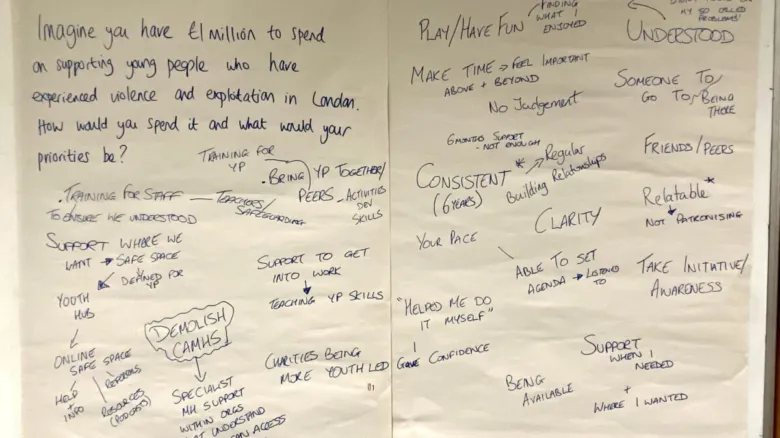 Imagine you have £1 million to spend
on supporting young people who have
experienced violence and exploitation in London.
How would you spend it and what would your
priorities be?
TRAINING FOR
YP
. BRING YP TOGETHER/
PEERS - ACTIVITIES
DEV
SKILLS
. TRAINING FOR STAFF — TEACHERS/
SAFEGUARDING
TO ENSURE WE UNDERSTOOD
SUPPORT WHERE WE
WANT → SAFE SPACE
DEFINED FOR
YP
YOUTH
HUB
ONLINE
SAFE SPACE
HELP
+
INFO
REFERRALS
RESOURCES
(PODCASTS)
SUPPORT TO GET
INTO WORK
TEACHING YP SKILLS
DEMOLISH
CAMHS
SPECIALIST
MH SUPPORT
WITHIN ORGS
UNDERSTAND
CAN ACCESS
CHARITIES BEING
MORE YOUTH LED
!!!
PLAY/HAVE FUN
FINDING
WHAT I
ENJOYED
MY SO CALLED
PROBLEMS'
UNDERSTOOD
MAKE TIME → FEEL IMPORTANT
ABOVE + BEYOND
No Judgement
SOMEONE TO/
GO TO, BEING
THERE
6 MONTHS SUPPORT
- NOT ENOUGH
CONSISTENT *
(6 YEARS)
Regular
Building Relationships
FRIENDS/PEERS
Relatable *
NOT PATRONISING
YOUR PACE
CLARITY
ABLE TO SET
AGENDA → LISTENED
TO
TAKE INITIATIVE/
AWARENESS
"HELPED ME DO
IT MYSELF"
GAVE CONFIDENCE
SUPPORT
WHEN I
NEEDED
+
WHERE I WANTED
BEING
AVAILABLE